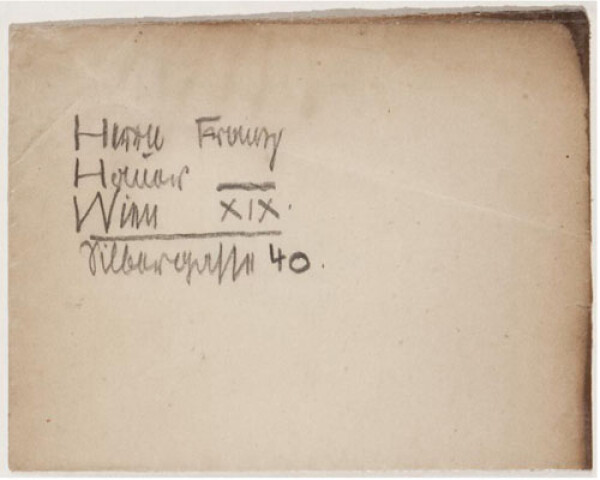 Herrn Franz
Hauer
Wien XIX.
Silbergasse 40.